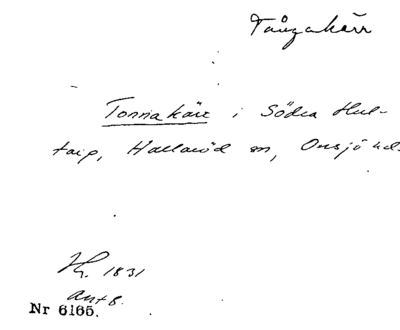 Tångakärr
Tornakärr i Södra Hul-
tarp, Hallaröd sn, Onsjö hd.
Hs. 1831
Ant B.
Nr 6165.